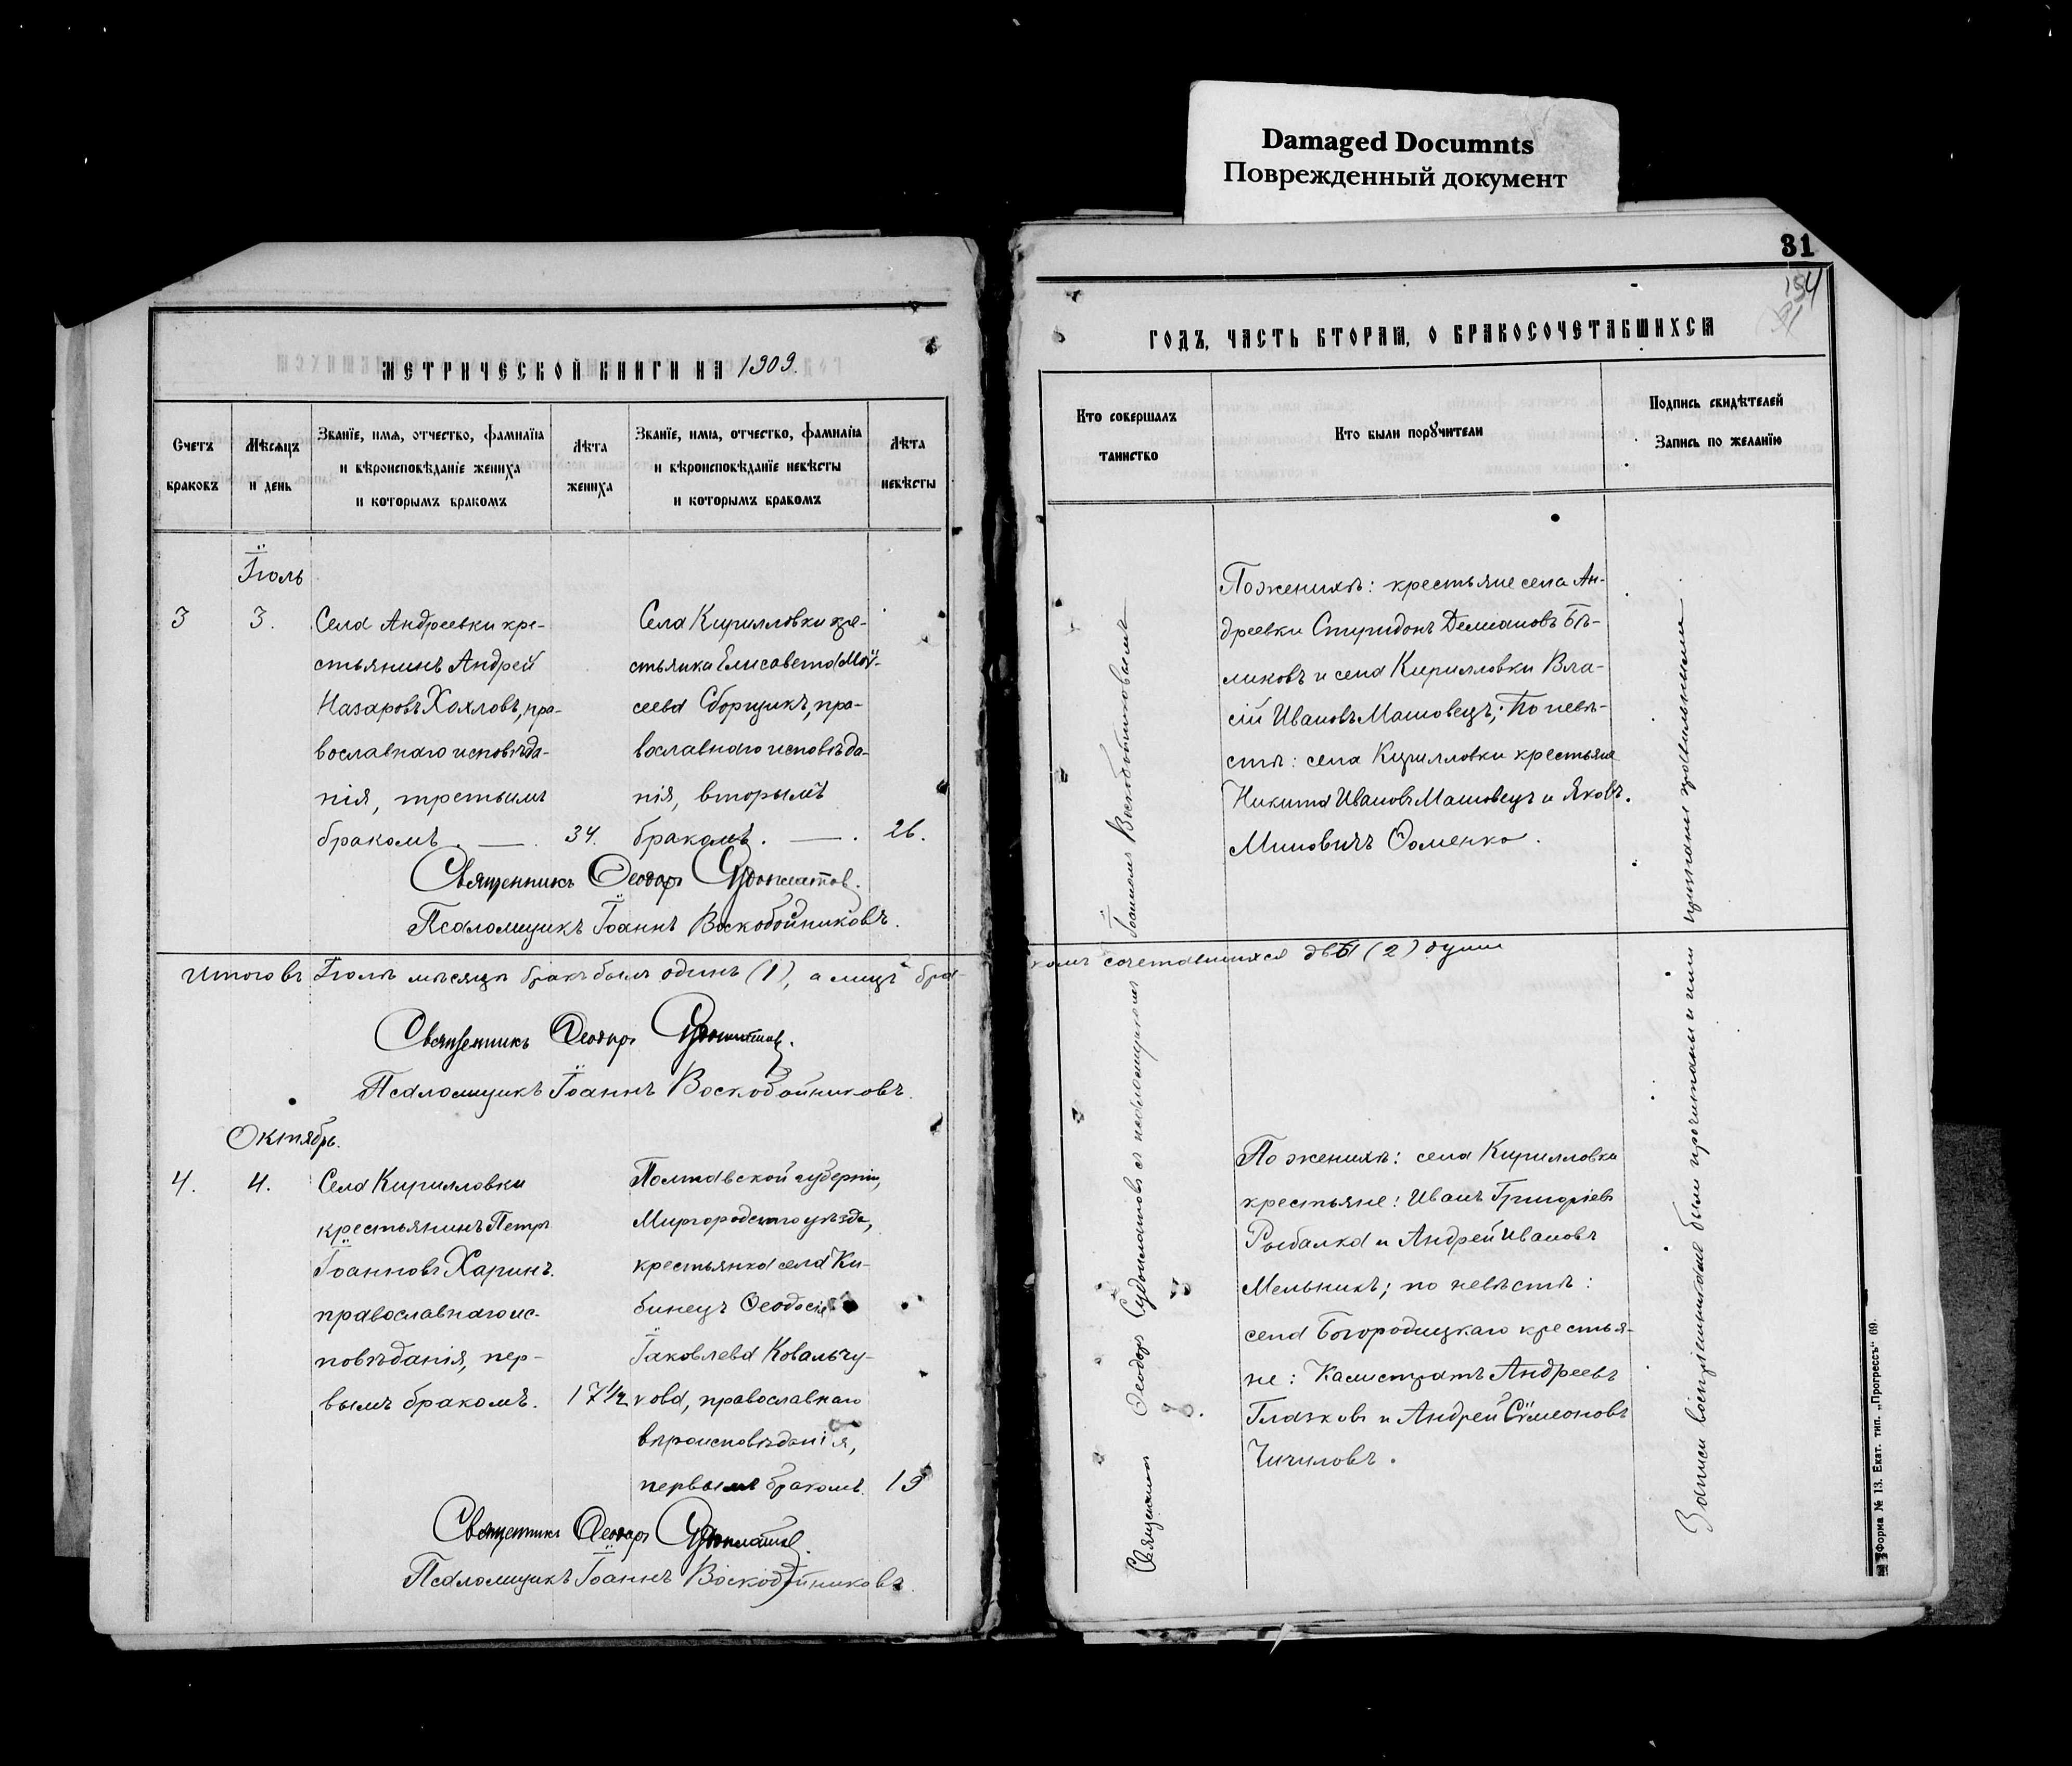 Damaged Documnts
Поврежденный документ
31
154
МЕТРИЧЕСКОЙ КНИГИ НА 1909.
ГОДЪ, ЧАСТЬ ВТОРАЯ, О БРАКОСОЧЕТАВШИХСЯ
Счетъ
браковъ
Мѣсяцъ
и день
Званїе, имя, отчество, фамилїя
и вѣроисповѣданїе жениха
и которымъ бракомъ
Лѣта
жениха
Званїе, имя, отчество, фамилїя
и вѣроисповѣданїе невѣсты
и которымъ бракомъ
Лѣта
невѣсты
Кто совершалъ
таинство
Кто были поручители
Подпись свидѣтелей
Запись по желанїю
Іюль
3
3.
Села Андреевки кре-
стьянинъ Андрей
Назаровъ Хохловъ, пра-
вославнаго исповѣда-
нія, третьимъ
бракомъ.
34.
Села Кирилловки кре-
стьянка Елисавета Мой-
сеева Сборщикъ, пра-
вославнаго исповѣда-
нія, вторымъ
бракомъ.
26.
Священникъ Ѳеодоръ Судоплатов.
Псаломщикъ Іоаннъ Воскобойниковъ.
По женихѣ: крестьяне села Ан-
дреевки Спиридонъ Демиановъ Бѣ-
ликовъ и села Кирилловки Вла-
сій Ивановъ Машовецъ; По невѣ-
стѣ: села Кирилловки крестьяне
Никита Ивановъ Машовецъ и Яковъ
Миновичъ Ѳоменко.
Итого въ Іюлѣ мѣсяцѣ бракъ былъ одинъ (1), а лицъ бра-
комъ сочетавшихся двѣ (2) души
Священникъ Ѳеодоръ Судоплатов.
Псаломщикъ Іоаннъ Воскобойниковъ.
Октябрь.
4.
4.
Села Кирилловки
крестьянинъ Петръ
Іоанновъ Харинъ.
православнаго ис-
повѣданія, пер-
вымъ бракомъ.
17½
Полтавской губерніи,
Миргородскаго уѣзда,
крестьянка села Ки-
бинецъ Ѳеодосія
Іаковлева Ковальчу-
кова, православнаго
вѣроисповѣданія,
первымъ бракомъ.
19
Священникъ Ѳеодоръ Судоплатов.
Псаломщикъ Іоаннъ Воскобойниковъ.
По женихѣ: села Кирилловки
крестьяне: Иванъ Григоріевъ
Рыбалка и Андрей Ивановъ
Мельникъ; по невѣстѣ:
села Богородицкаго крестья-
не: Калистратъ Андреевъ
Глазковъ и Андрей Сѵмеоновъ
Чичиловъ.
Священникъ Ѳеодоръ Судоплатовъ съ псаломщикомъ Іоанномъ Воскобойниковымъ
Записи воспріемниками были прочитаны и ими признаны правильными.
Форма № 13. Екат. тип. „Прогрессъ" 69.